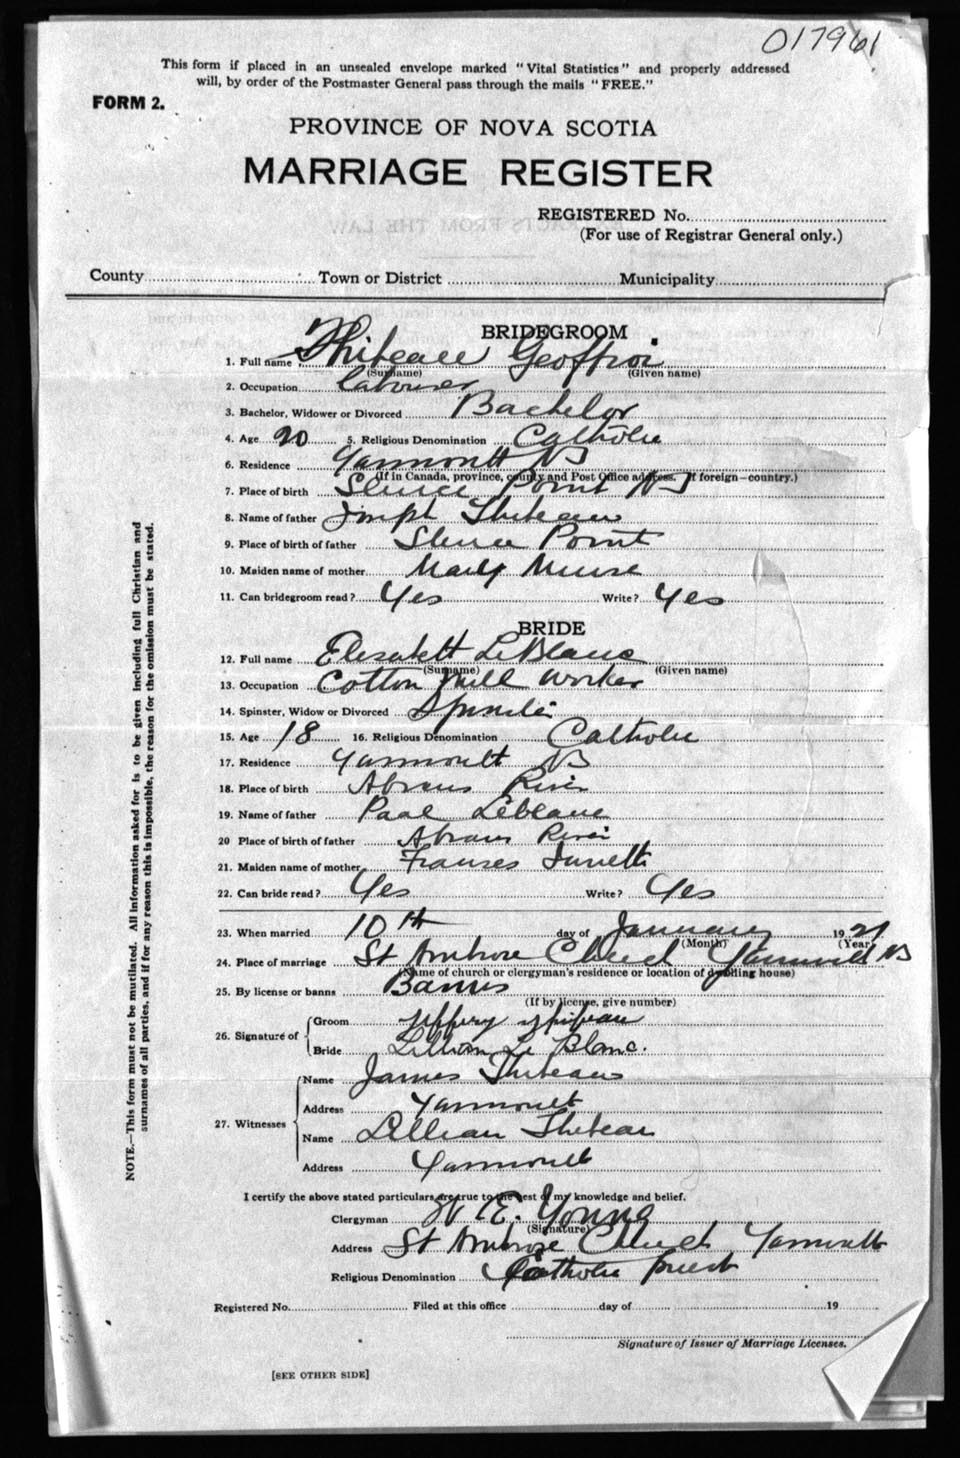 017961
This form if placed in an unsealed envelope marked "Vital Statistics" and properly addressed
will, by order of the Postmaster General pass through the mails "FREE."
FORM 2.
PROVINCE OF NOVA SCOTIA
MARRIAGE REGISTER
REGISTERED No.
(For use of Registrar General only.)
County Town or District Municipality
BRIDEGROOM
1. Full name Thibeau Geoffroi
(Surname) (Given name)
2. Occupation Labourer
3. Bachelor, Widower or Divorced Bachelor
4. Age 20 5. Religious Denomination Catholic
6. Residence Yarmouth NS
(If in Canada, province, county and Post Office address. If foreign—country.)
7. Place of birth Sluice Point NS
8. Name of father Joseph Thibeau
9. Place of birth of father Sluice Point
10. Maiden name of mother Mary Muise
11. Can bridegroom read? Yes Write? Yes
BRIDE
12. Full name Elizabeth LeBlanc
(Surname) (Given name)
13. Occupation Cotton Mill Worker
14. Spinster, Widow or Divorced Spinster
15. Age 18 16. Religious Denomination Catholic
17. Residence Yarmouth NS
18. Place of birth Abrams River
19. Name of father Paul Leblanc
20 Place of birth of father Abrams River
21. Maiden name of mother Frances
22. Can bride read? Yes Write? Yes
23. When married 10th day of January 1921
(Month) (Year)
24. Place of marriage St Ambrose Church Yarmouth NS
(Name of church or clergyman's residence or location of dwelling house)
25. By license or banns Banns
(If by license, give number)
26. Signature of Groom Jeffery Thibeau
Bride Lillian Le Blanc.
27. Witnesses Name James Thibeau
Address Yarmouth
Name Lillian Thibeau
Address Yarmouth
I certify the above stated particulars are true to the best of my knowledge and belief.
Clergyman W E. Young
(Signature)
Address St Ambrose Church Yarmouth
Religious Denomination Catholic priest
Registered No. Filed at this office day of 19
Signature of Issuer of Marriage Licenses.
[SEE OTHER SIDE]
NOTE.—This form must not be mutilated. All information asked for is to be given including full Christian and
surnames of all parties, and if for any reason this is impossible, the reason for the omission must be stated.